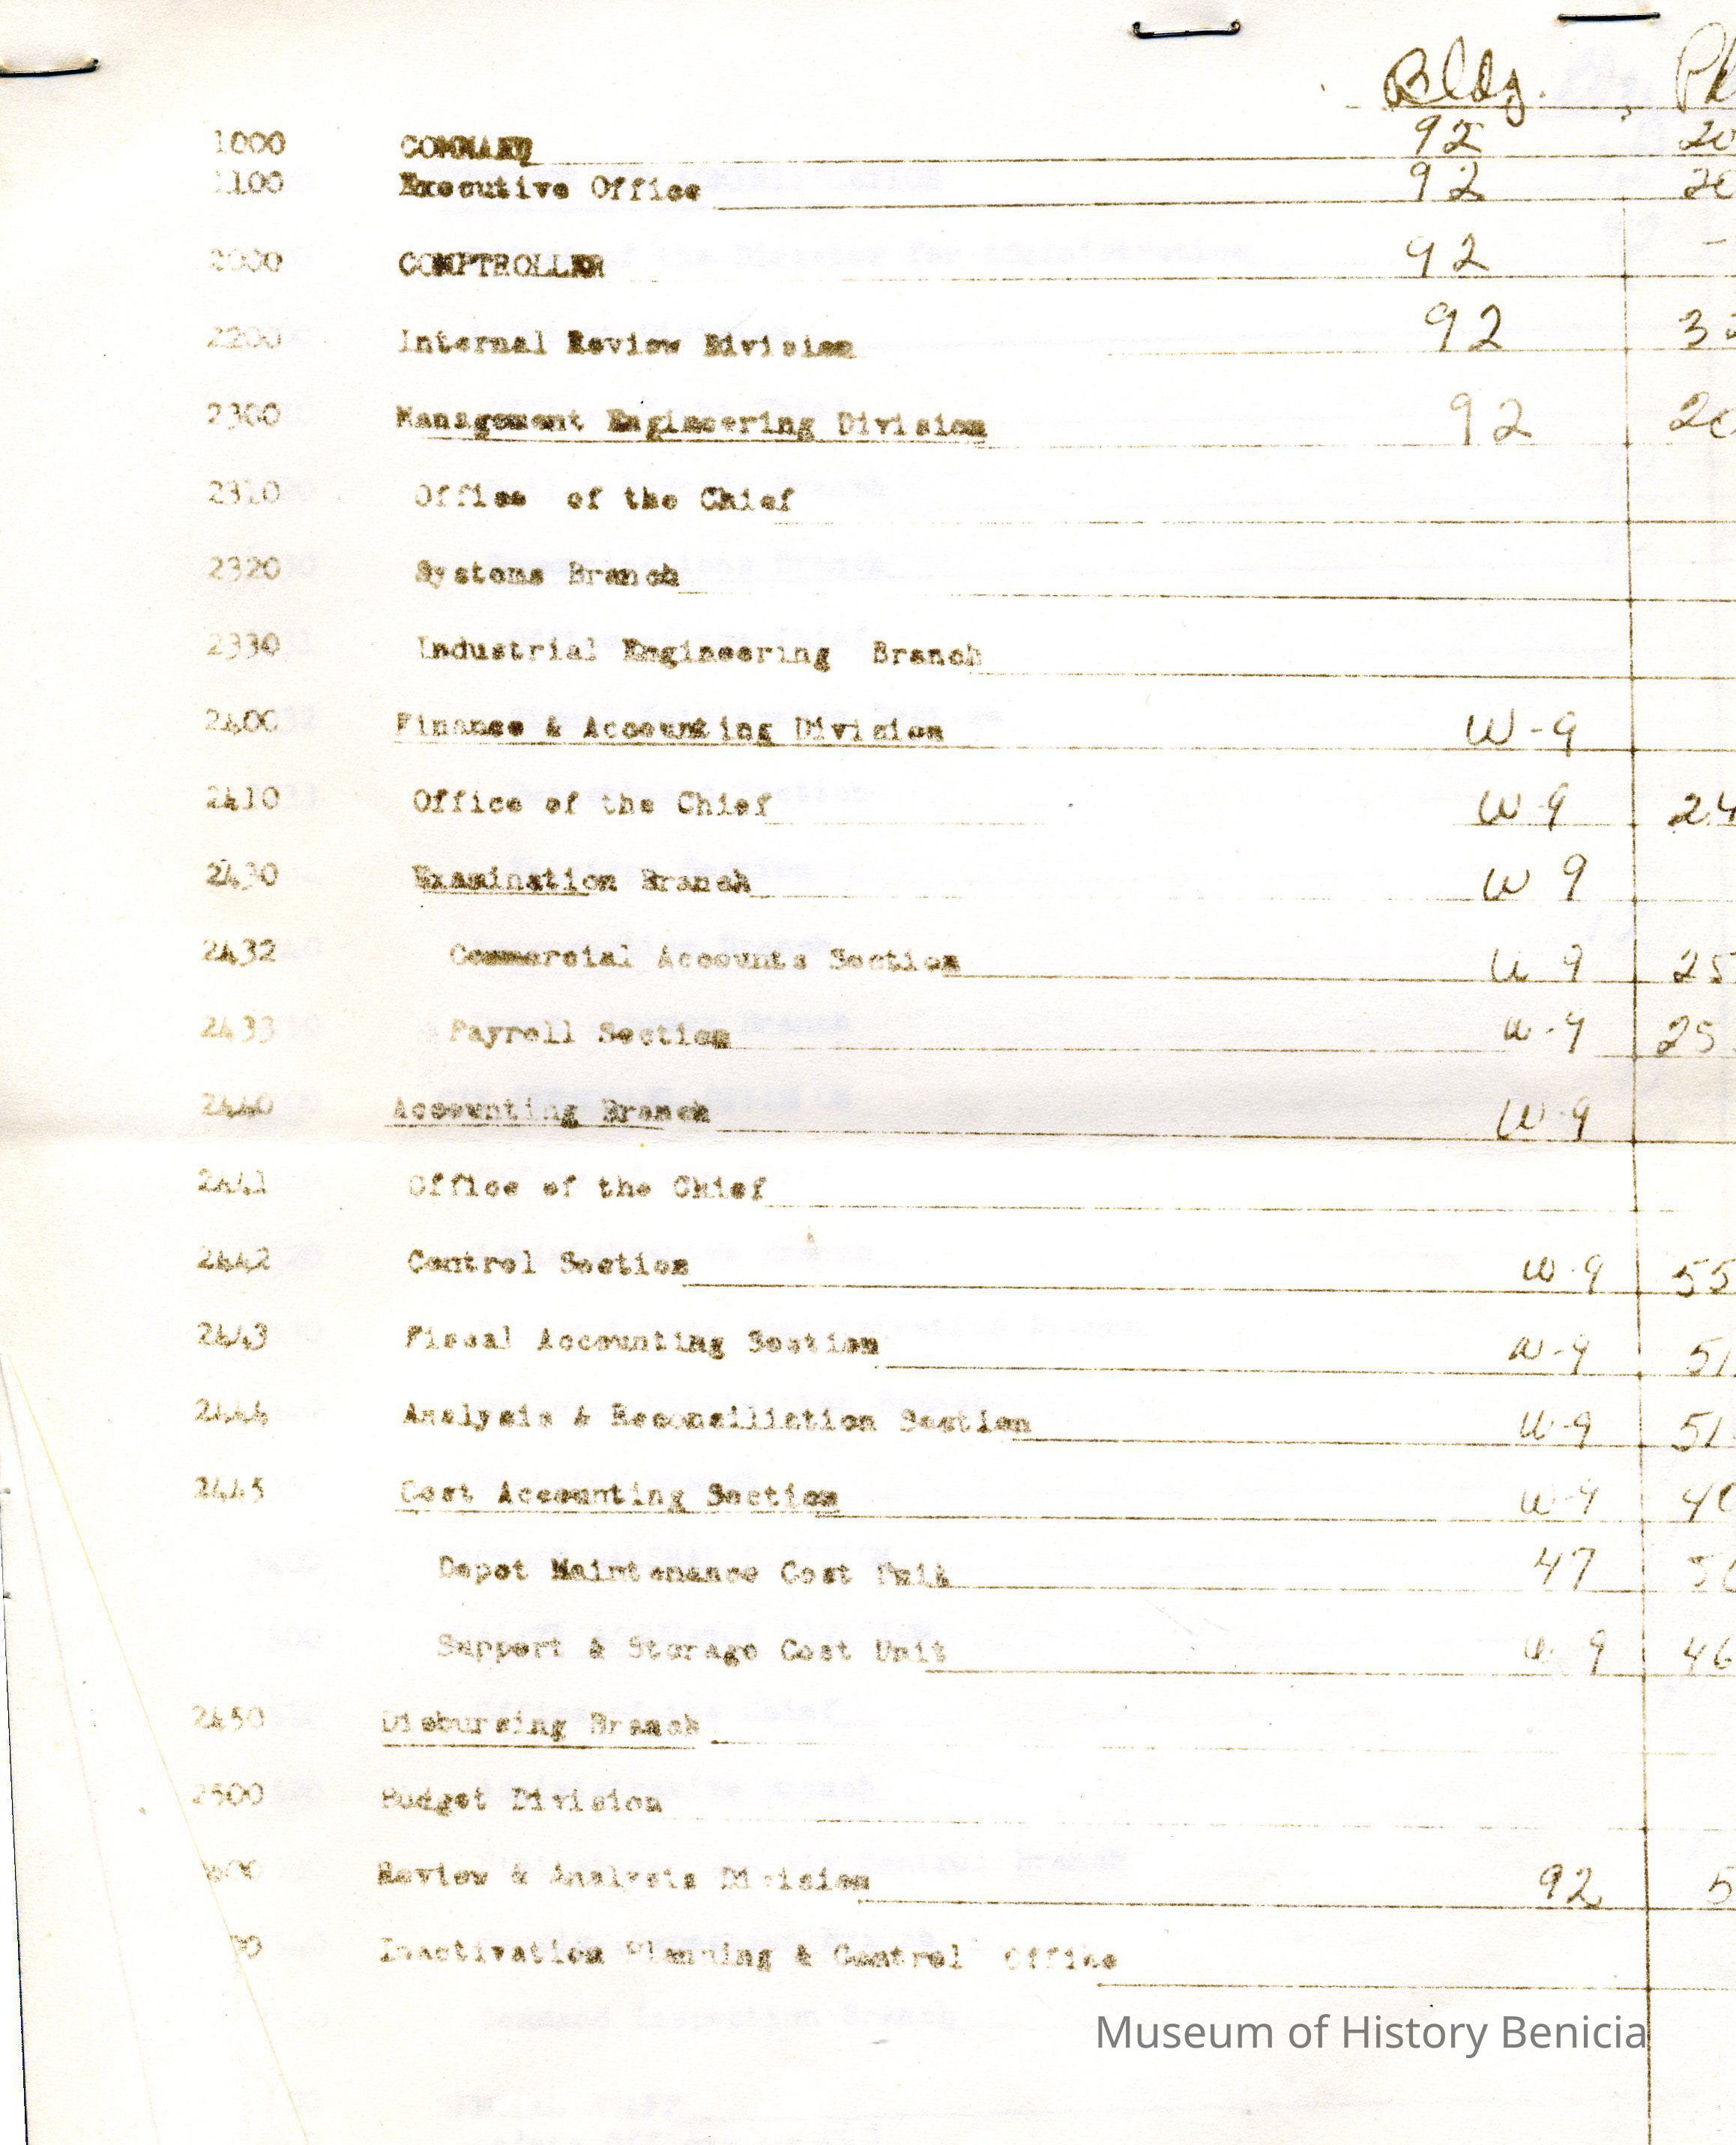 Bldg. Ph
1000 COMMAND 92 20
1100 Executive Office 92 20
2000 COMPTROLLER 92 -
2200 Internal Review Division 92 3
2300 Management Engineering Division 92 20
2310 Office of the Chief
2320 Systems Branch
2330 Industrial Engineering Branch
2400 Finance & Accounting Division W-9
2410 Office of the Chief W-9 24
2430 Examination Branch W 9
2432 Commercial Accounts Section W 9 25
2433 Payroll Section W-9 25
2440 Accounting Branch W-9
2441 Office of the Chief
2442 Control Section W-9 55
2443 Fiscal Accounting Section W-9 51
2444 Analysis & Reconciliation Section W-9 51
2445 Cost Accounting Section W-9 40
Depot Maintenance Cost Unit 47 50
Support & Storage Cost Unit W 9 46
2450 Disbursing Branch
2500 Budget Division
Review & Analysis Division 92 5
Inactivation Planning & Control Office
Museum of History Benicia